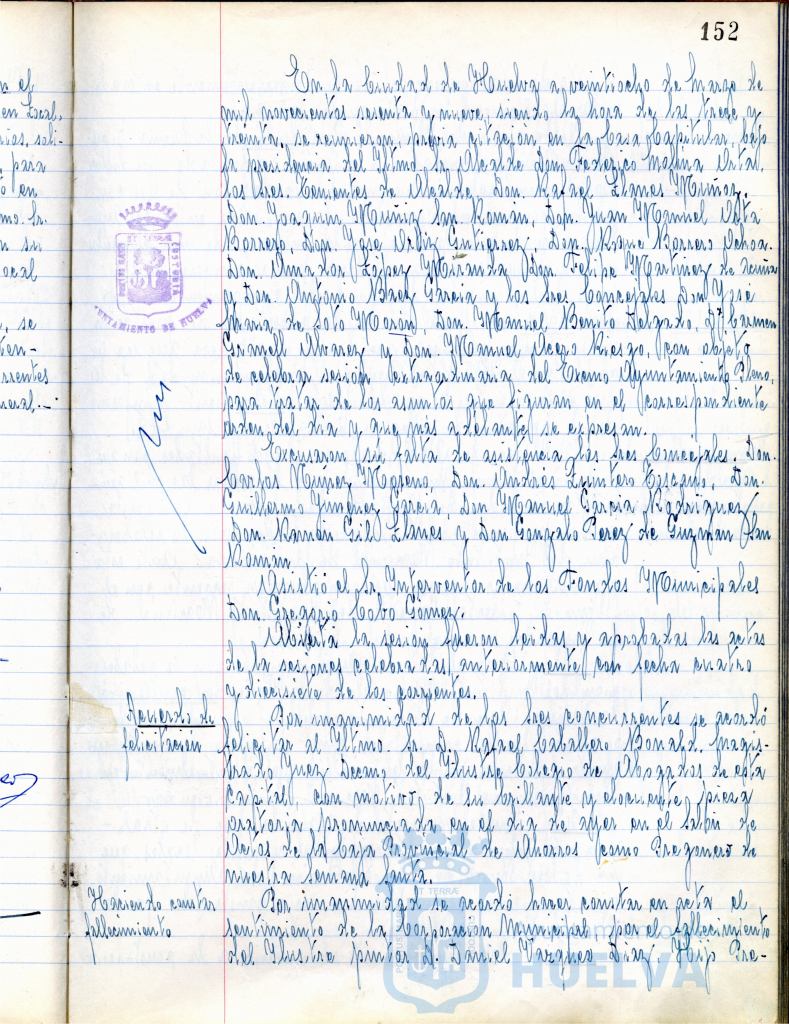 152
En la Ciudad de Huelva a veintiocho de Marzo de
mil novecientos sesenta y nueve, siendo la hora de las trece y
treinta, se reunieron, previa citación en la Casa Capitular, bajo
la presidencia del Iltmo. Sr. Alcalde Don Federico Molina Orta,
los Sres. Tenientes de Alcalde, Don. Rafael Llanes Muñoz,
Don. Joaquin Muñiz San Román, Don. Juan Manuel Asta
Borrero, Don. Jose Ortiz Gutierrez, Don. Roque Borrero Ochoa.
Don. Amador López Miranda Don. Felipe Martinez de Acuña
y Don. Antonio Baez Garcia y los Sres. Concejales Don Jose
Maria de Soto Morón, Don. Manuel Benito Delgado, Dª Carmen
Granell Alvarez y Don. Manuel Acero Riesgo, con objeto
de celebrar sesión extraordinaria del Excmo Ayuntamiento Pleno,
para tratar de los asuntos que figuran en el correspondiente
orden del dia y que más adelante se expresan.
Excusaron su falta de asistencia los Sres Concejales. Don.
Carlos Núñez Moreno, Don. Andrés Quintero Toscano, Don.
Guillermo Jimenez García, Don Manuel Garcia Rodriguez,
Don. Ramón Gil Llanes y Don Gonzalo Perez de Guzman San
Román
Asistió el Sr. Interventor de los Fondos Municipales
Don. Gregorio Cobo Gómez.
Abierta la sesión fueron leidas y aprobadas las actas
de la sesiones celebradas anteriormente con fecha cuatro
y diecisiete de los corrientes.
Acuerdo de
felicitación
Por unanimidad de los Sres concurrentes se acordó
felicitar al Iltmo. Sr. D. Rafael Caballero Bonald, Magis-
trado Juez Decano del Ilustre Colegio de Abogados de esta
Capital, con motivo de su brillante y elocuente pieza
oratoria pronunciada en el dia de ayer en el Salón de
Actos de la Caja Provincial de Ahorros como Pregonero de
nuestra Semana Santa.
Haciendo constar
fallecimiento
Por unanimidad se acordó hacer constar en acta el
sentimiento de la Corporacion Municipal por el fallecimiento
del Ilustre pintor D. Daniel Vazquez Diaz, Hijo Pre-
AYUNTAMIENTO DE HUELVA
HUELVA